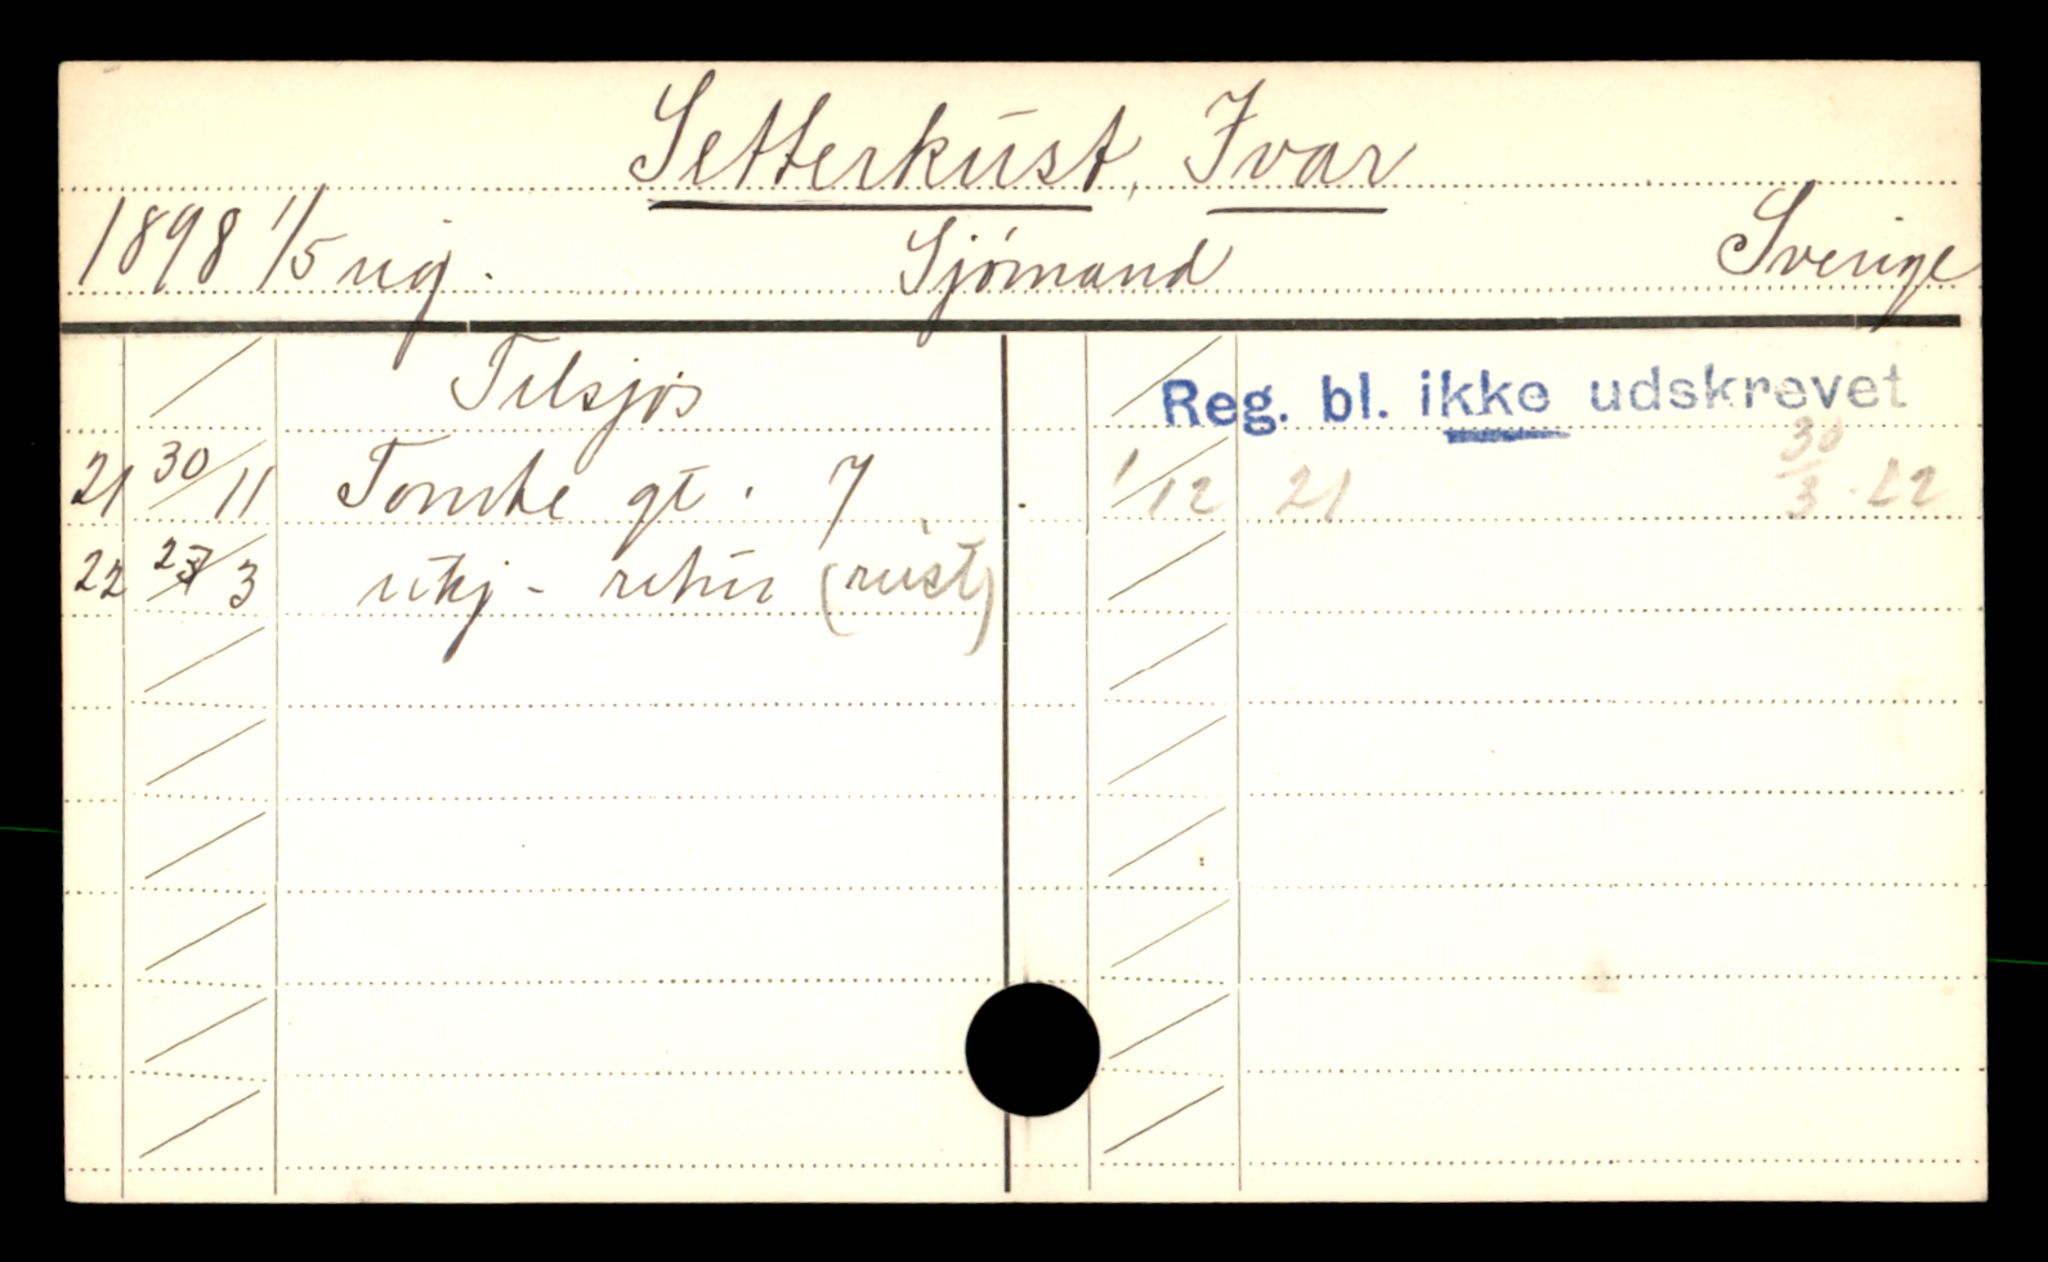 Setterkust, Ivar
1898 1/5 ug. Sjömand Sverige
Tilsjøs
Reg. bl. ikke udskrevet
21 30/11 Tomtegt. 7 1/12 21 30/3 22
22 3 utkj - retur (rust)